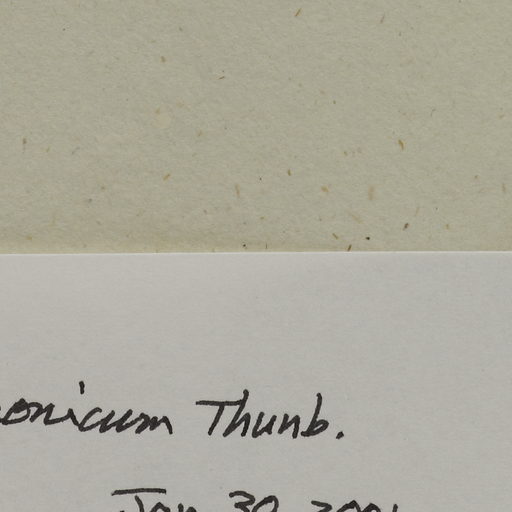 onicum Thunb.
Jan 30 2001